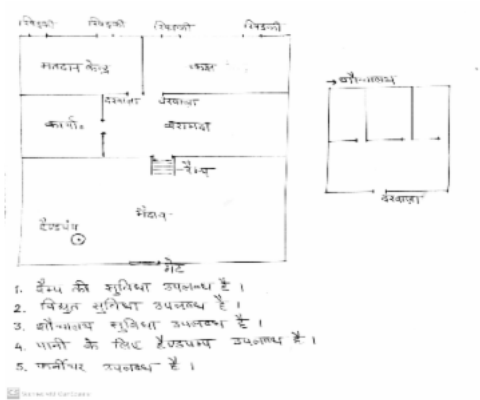 खिड़की खिड़की खिड़की खिड़की
मतदान केन्द्र कक्ष
शौचालय
दरवाजा दरवाजा
कार्या० बरामदा
रैम्प
दरवाजा
मैदान
हैण्डपंप
गेट
1. रैम्प की सुविधा उपलब्ध है ।
2. विद्युत सुविधा उपलब्ध है ।
3. शौचालय सुविधा उपलब्ध है ।
4. पानी के लिए हैण्डपम्प उपलब्ध है ।
5. फर्नीचर उपलब्ध है ।